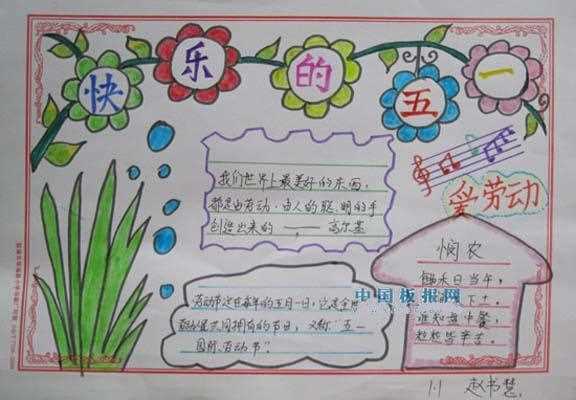 快乐的五一
爱劳动
我们世界上最美好的东西,
都是由劳动、由人的聪明的手
创造出来的 ——高尔基
悯农
锄禾日当午,
下土。
谁知盘中餐,
粒粒皆辛苦。
中国板报网
劳动节定在每年的五月一日,它是全世
共同拥有的节日,又称"五一
国际劳动节"。
1.1 赵书慧